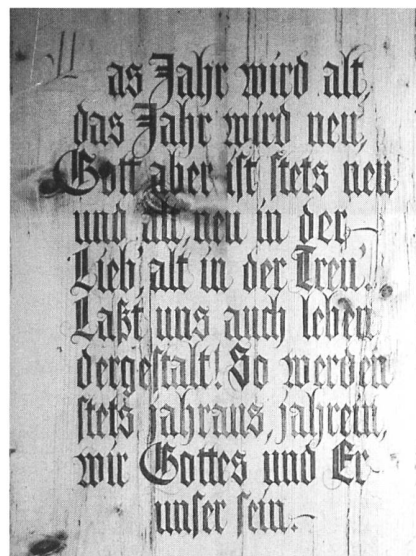 as Jahr wird alt,
das Jahr wird neu,
Gott aber ist stets neu
und alt, neu in der
Lieb', alt in der Treu'.
Laßt uns auch leben
dergestalt! So werden
stets, jahraus, jahrein,
wir Gottes und Er
unser sein.